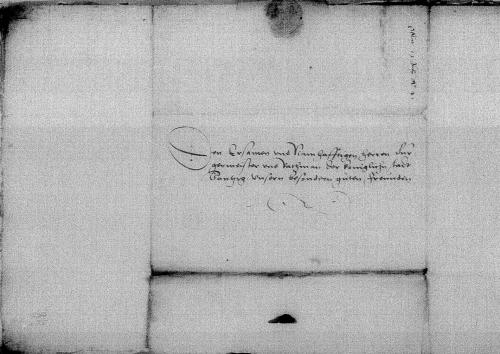 Den Ersamen und Namhafftigen herren Bur
germeister und Rathman der koniglichn stadt
Dantzig unsern besondern guten freunden